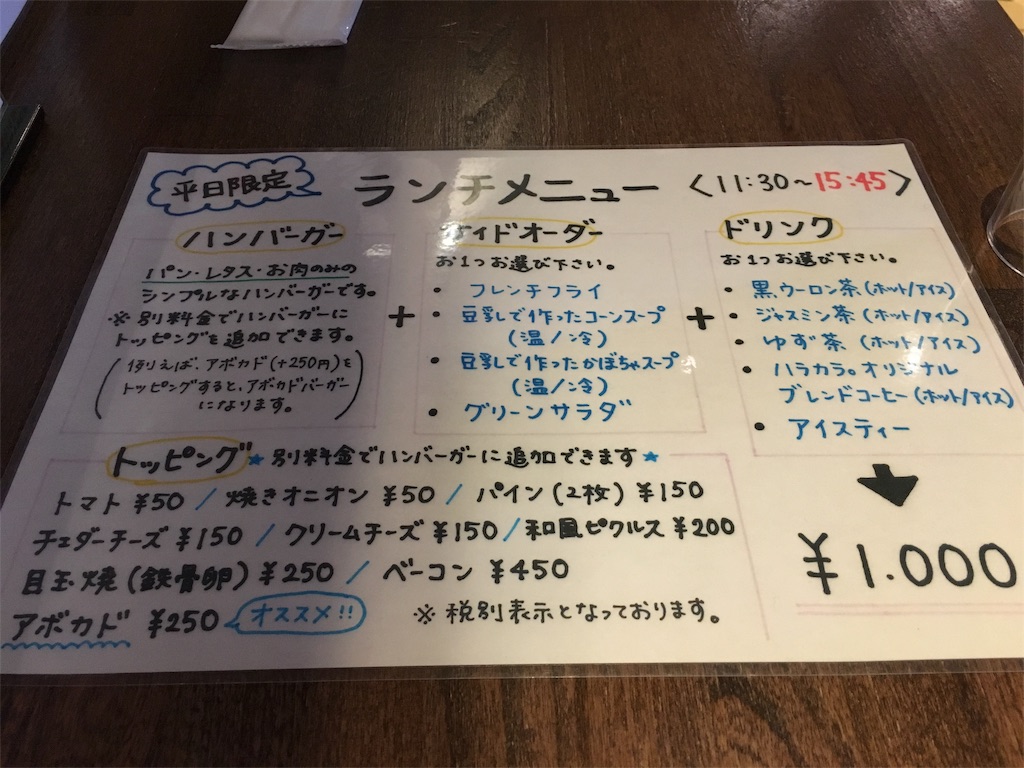 平日限定
ランチメニュー 〈11:30~15:45〉
ハンバーガー
パン・レタス・お肉のみの
シンプルなハンバーガーです。
※別料金でハンバーガーに
トッピングを追加できます。
(例えば、アボカド(+250円)を
トッピングすると、アボカドバーガー
になります。)
+
サイドオーダー
お1つお選び下さい。
・フレンチフライ
・豆乳で作ったコーンスープ
(温/冷)
・豆乳で作ったかぼちゃスープ
(温/冷)
・グリーンサラダ
+
ドリンク
お1つお選び下さい。
・黒ウーロン茶(ホット/アイス)
・ジャスミン茶(ホット/アイス)
・ゆず茶(ホット/アイス)
・ハラカラ。オリジナル
ブレンドコーヒー(ホット/アイス)
・アイスティー
¥1.000
トッピング★別料金でハンバーガーに追加できます★
トマト¥50/焼きオニオン¥50/パイン(2枚)¥150
チェダーチーズ¥150/クリームチーズ¥150/和風ピクルス¥200
目玉焼(鉄骨卵)¥250/ベーコン¥450
アボカド¥250 オススメ!!
※税別表示となっております。